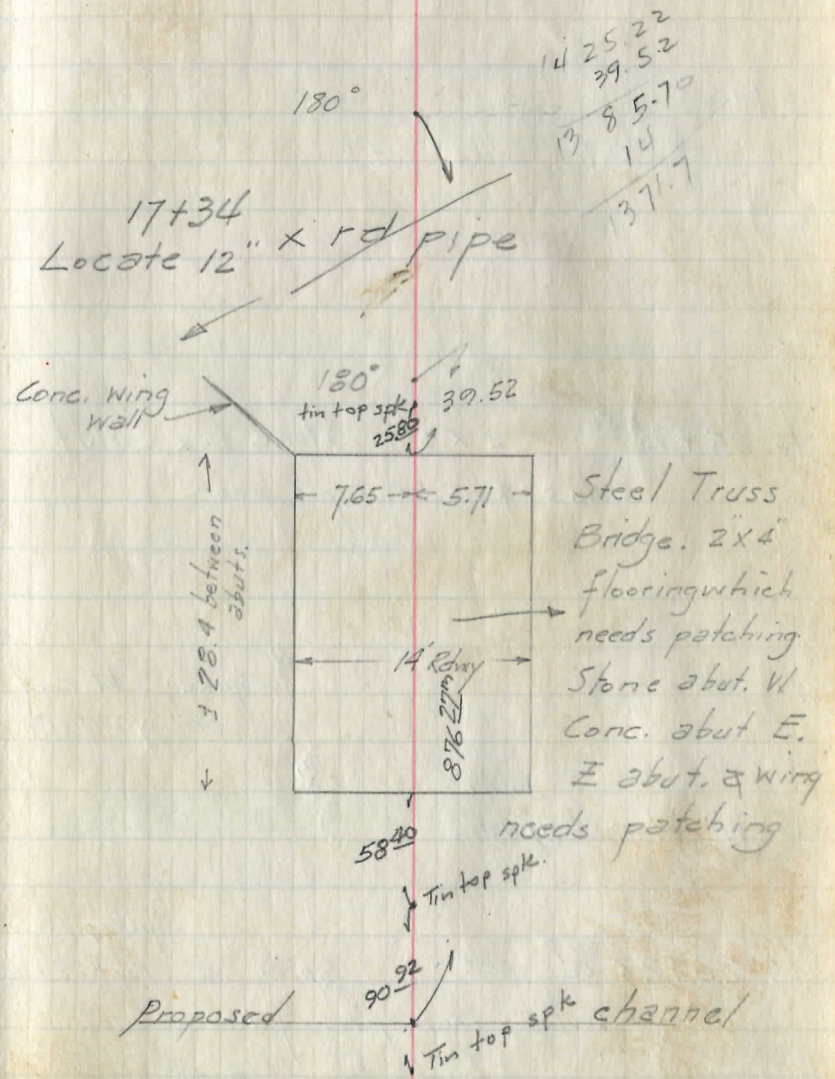 14 25.22
39.52
13 85.70
14
1371.7
180°
17+34
Locate 12" x rd pipe
180°
tin top spk
39.52
25 80
Conc. wing
Wall
7.65
5.71
± 28.4 between
abuts.
14' Rdwy
Steel Truss
Bridge. 2"x4"
flooring which
needs patching
Stone abut. W
Conc. abut E.
E abut. & wing
needs patching
58 40
Tin top spk.
90 92
Proposed channel
Tin top spk